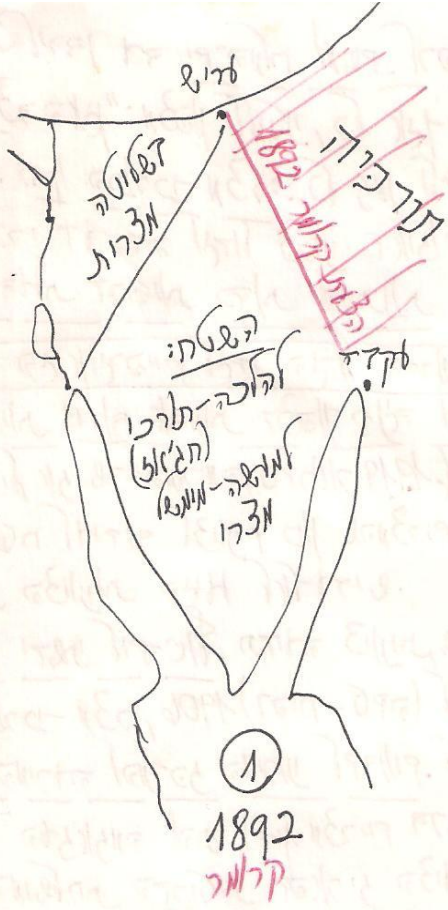 עריש
בשליטה
מצרית
תורכיה
הצעת קרומר 1892
עקבה
השטח:
להלכה-תורכי
(חג'אז)
למעשה-מימשל
מצרי
1
1892
קרומר